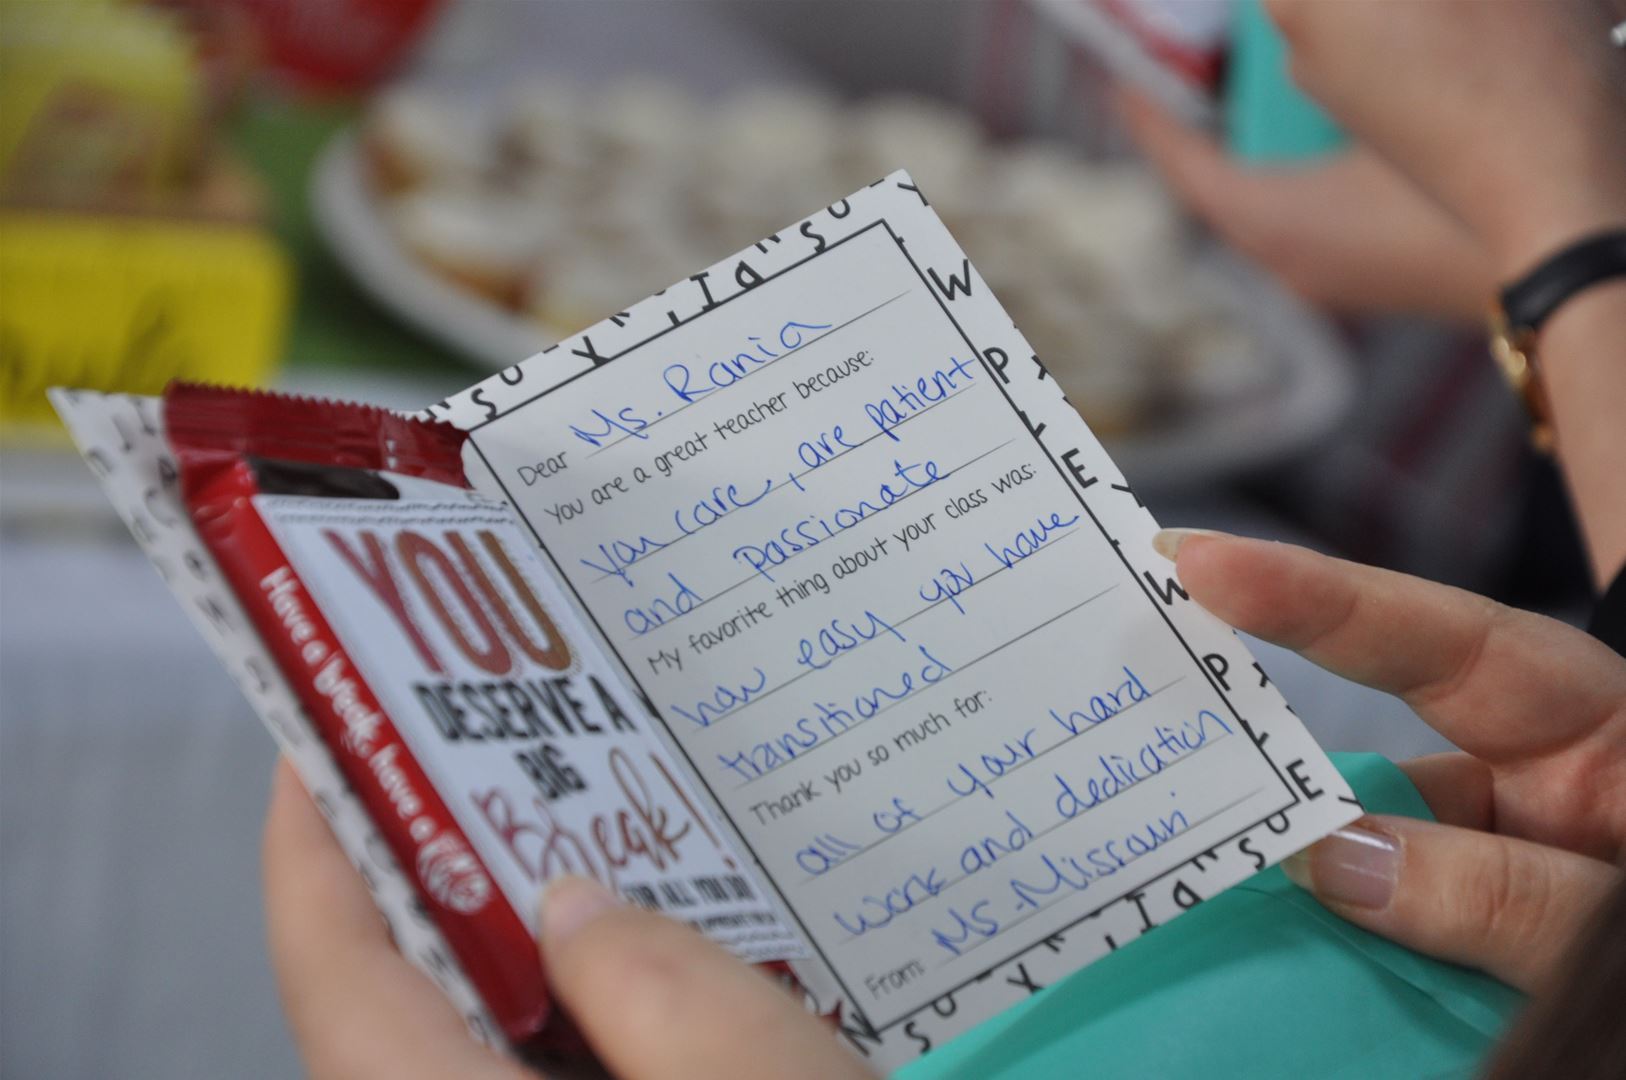 Have a break, have a KitKat
YOU
DESERVE A
BIG
Break!
FOR ALL YOU DO
Dear Ms. Rania
You are a great teacher because:
you care, are patient
and passionate
My favorite thing about your class was:
how easy you have
transitioned
Thank you so much for:
all of your hard
work and dedication
From: Ms. Missouri